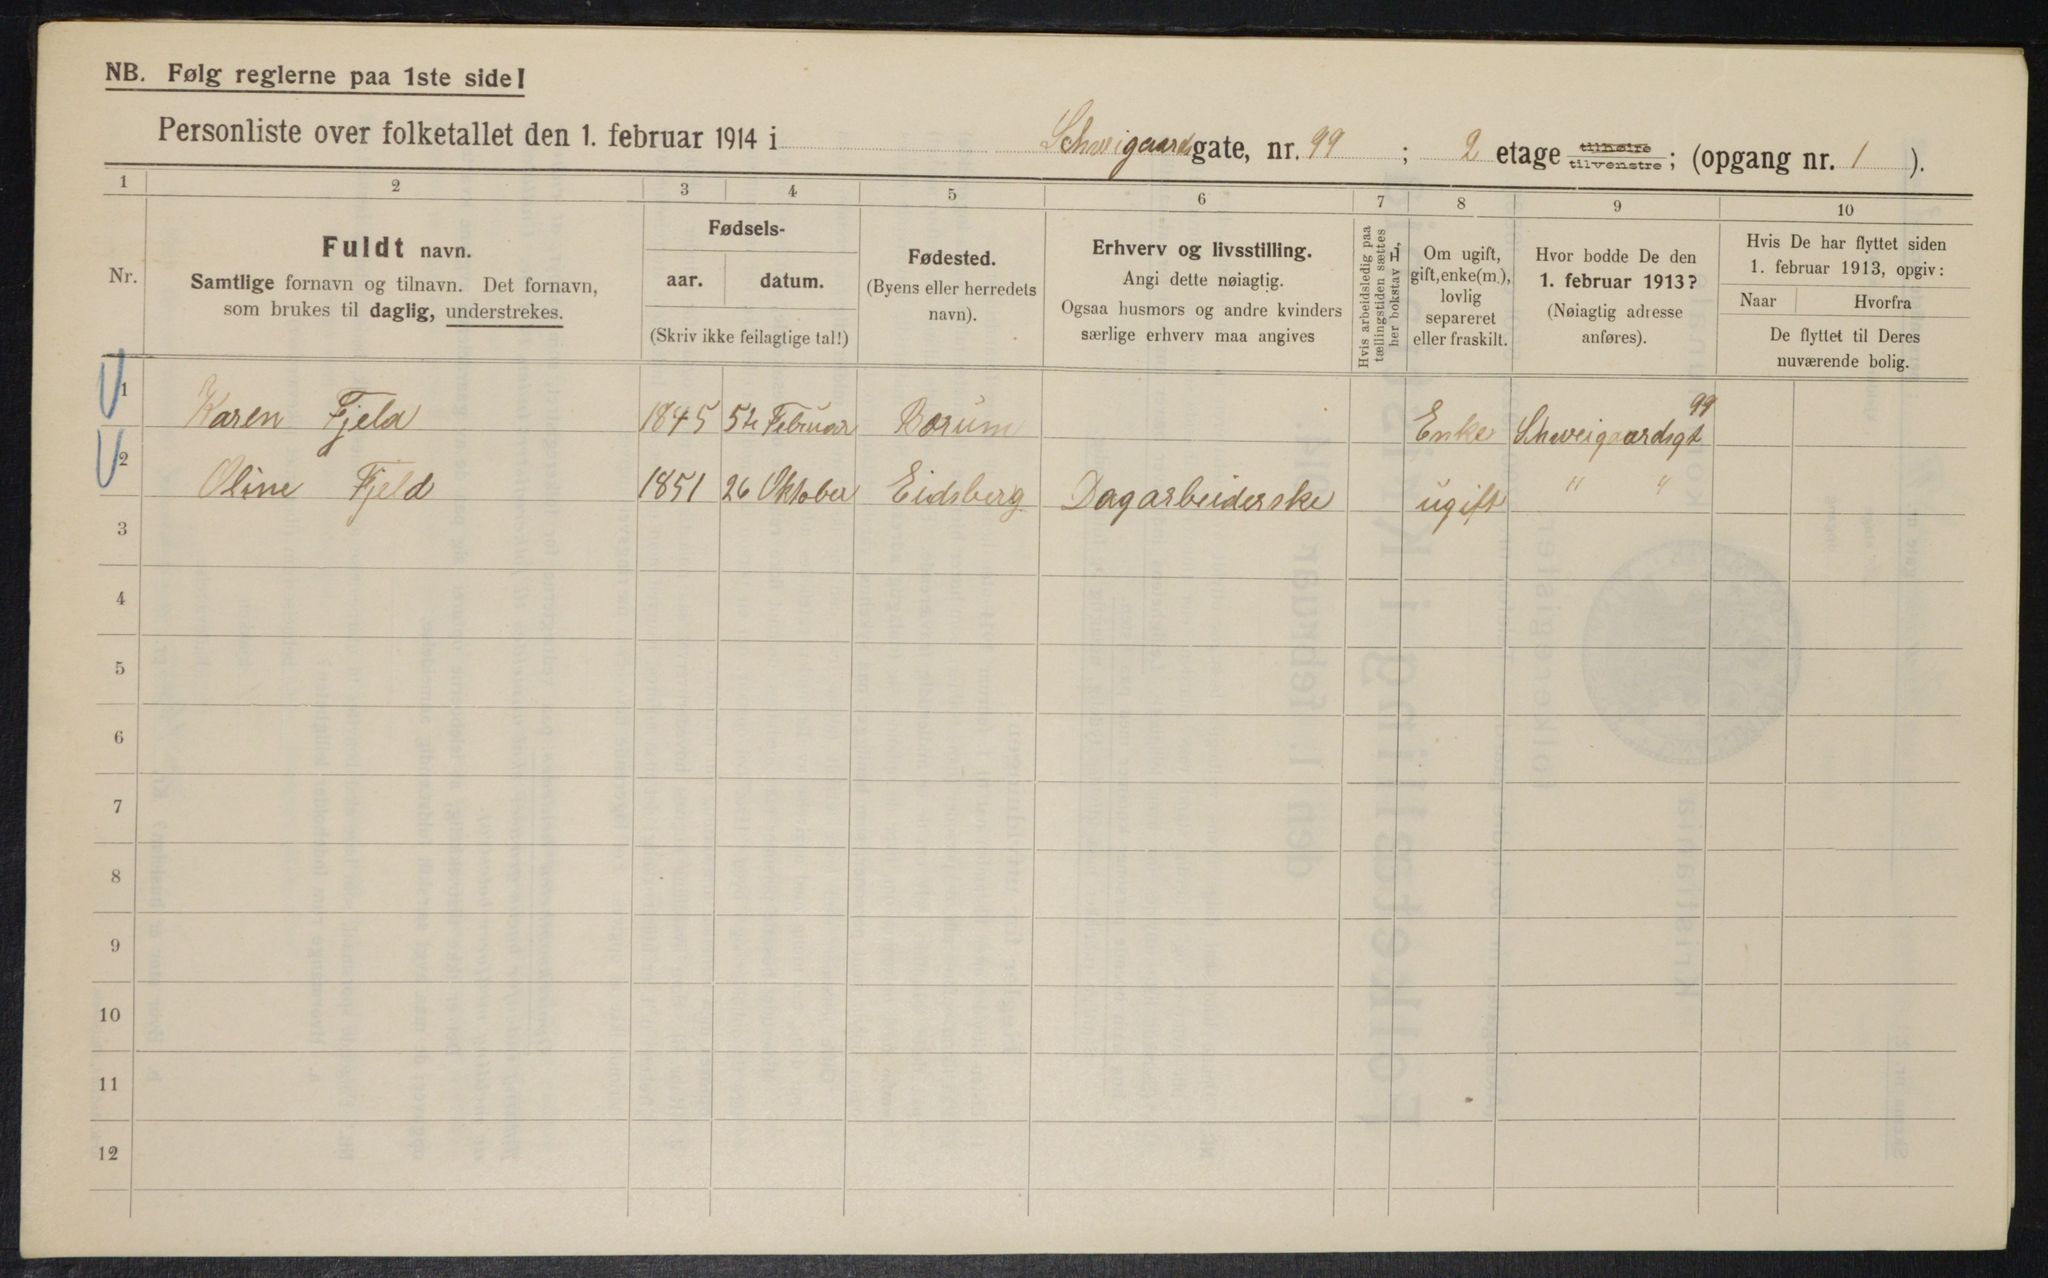 NB. Følg reglerne paa 1ste side!
Personliste over folketallet den 1. februar 1914 i Schweigaardsgate, nr. 99 ; 2 etage tilhøire tilvenstre; (opgang nr. 1 ).
1 2 3 4 5 6 7 8 9 10
Nr.
Fuldt navn.
Samtlige fornavn og tilnavn. Det fornavn,
som brukes til daglig, understrekes.
Fødsels-
aar. datum.
(Skriv ikke feilagtige tal!)
Fødested.
(Byens eller herredets
navn).
Erhverv og livsstilling.
Angi dette nøiagtig.
Ogsaa husmors og andre kvinders
særlige erhverv maa angives
Hvis arbeidsledig paa
tællingstiden sættes
her bokstav L.
Om ugift,
gift, enke(m.),
lovlig
separeret
eller fraskilt.
Hvor bodde De den
1. februar 1913?
(Nøiagtig adresse
anføres).
Hvis De har flyttet siden
1. februar 1913, opgiv:
Naar Hvorfra
De flyttet til Deres
nuværende bolig.
1 Karen Fjeld 1845 5te Februar Bærum Enke Schweigaardsgt 99
2 Oline Fjeld 1851 26 Oktober Eidsberg Dagarbeiderske ugift " "
3
4
5
6
7
8
9
10
11
12